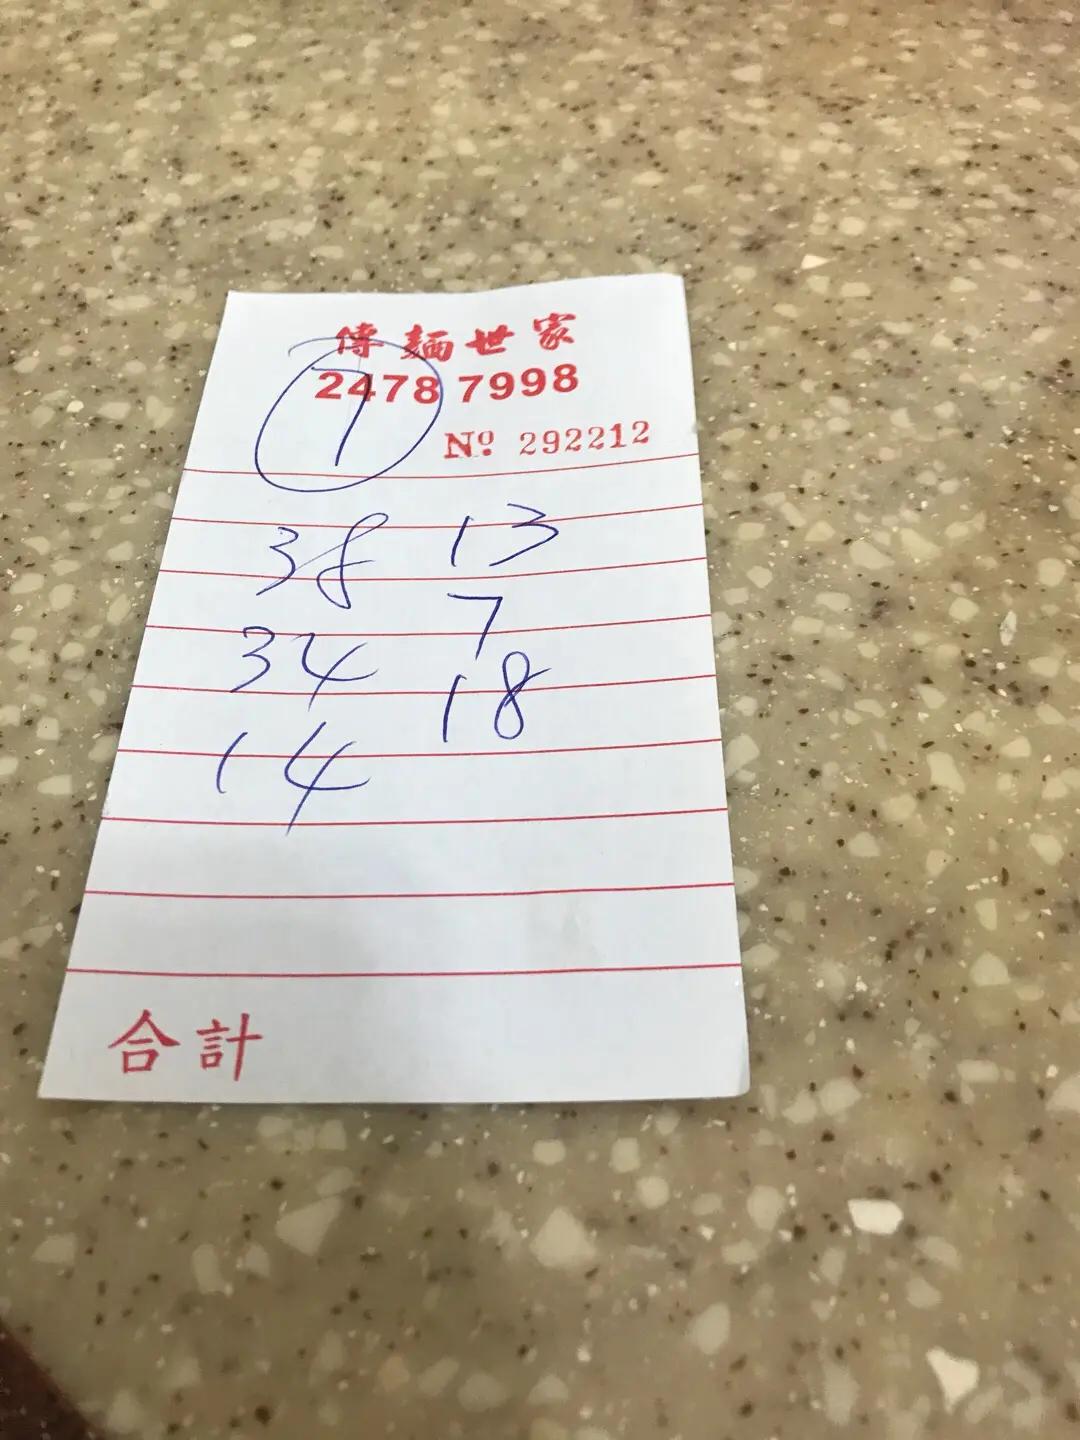 傳麵世家
2478 7998
7
Nº 292212
38 13
7
34
18
14
合計